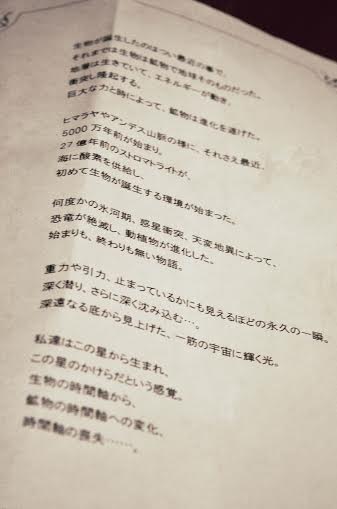 生物が誕生したのはつい最近の事で、
それまでは生物は鉱物で地球そのものだった。
地層は生きていて、エネルギーが動き、
衝突し隆起する。
巨大な力と時によって、鉱物は進化を遂げた。
ヒマラヤやアンデス山脈の様に、それさえ最近、
5000万年前が始まり。
27億年前のストロマトライトが、
海に酸素を供給し、
初めて生物が誕生する環境が始まった。
何度かの氷河期、惑星衝突、天変地異によって、
恐竜が絶滅し、動植物が進化した。
始まりも、終わりも無い物語。
重力や引力、止まっているかにも見えるほどの永久の一瞬。
深く潜り、さらに深く沈み込む…。
深遠なる底から見上げた、一筋の宇宙に輝く光。
私達はこの星から生まれ、
この星のかけらだという感覚。
生物の時間軸から、
鉱物の時間軸への変化、
時間軸の喪失……。